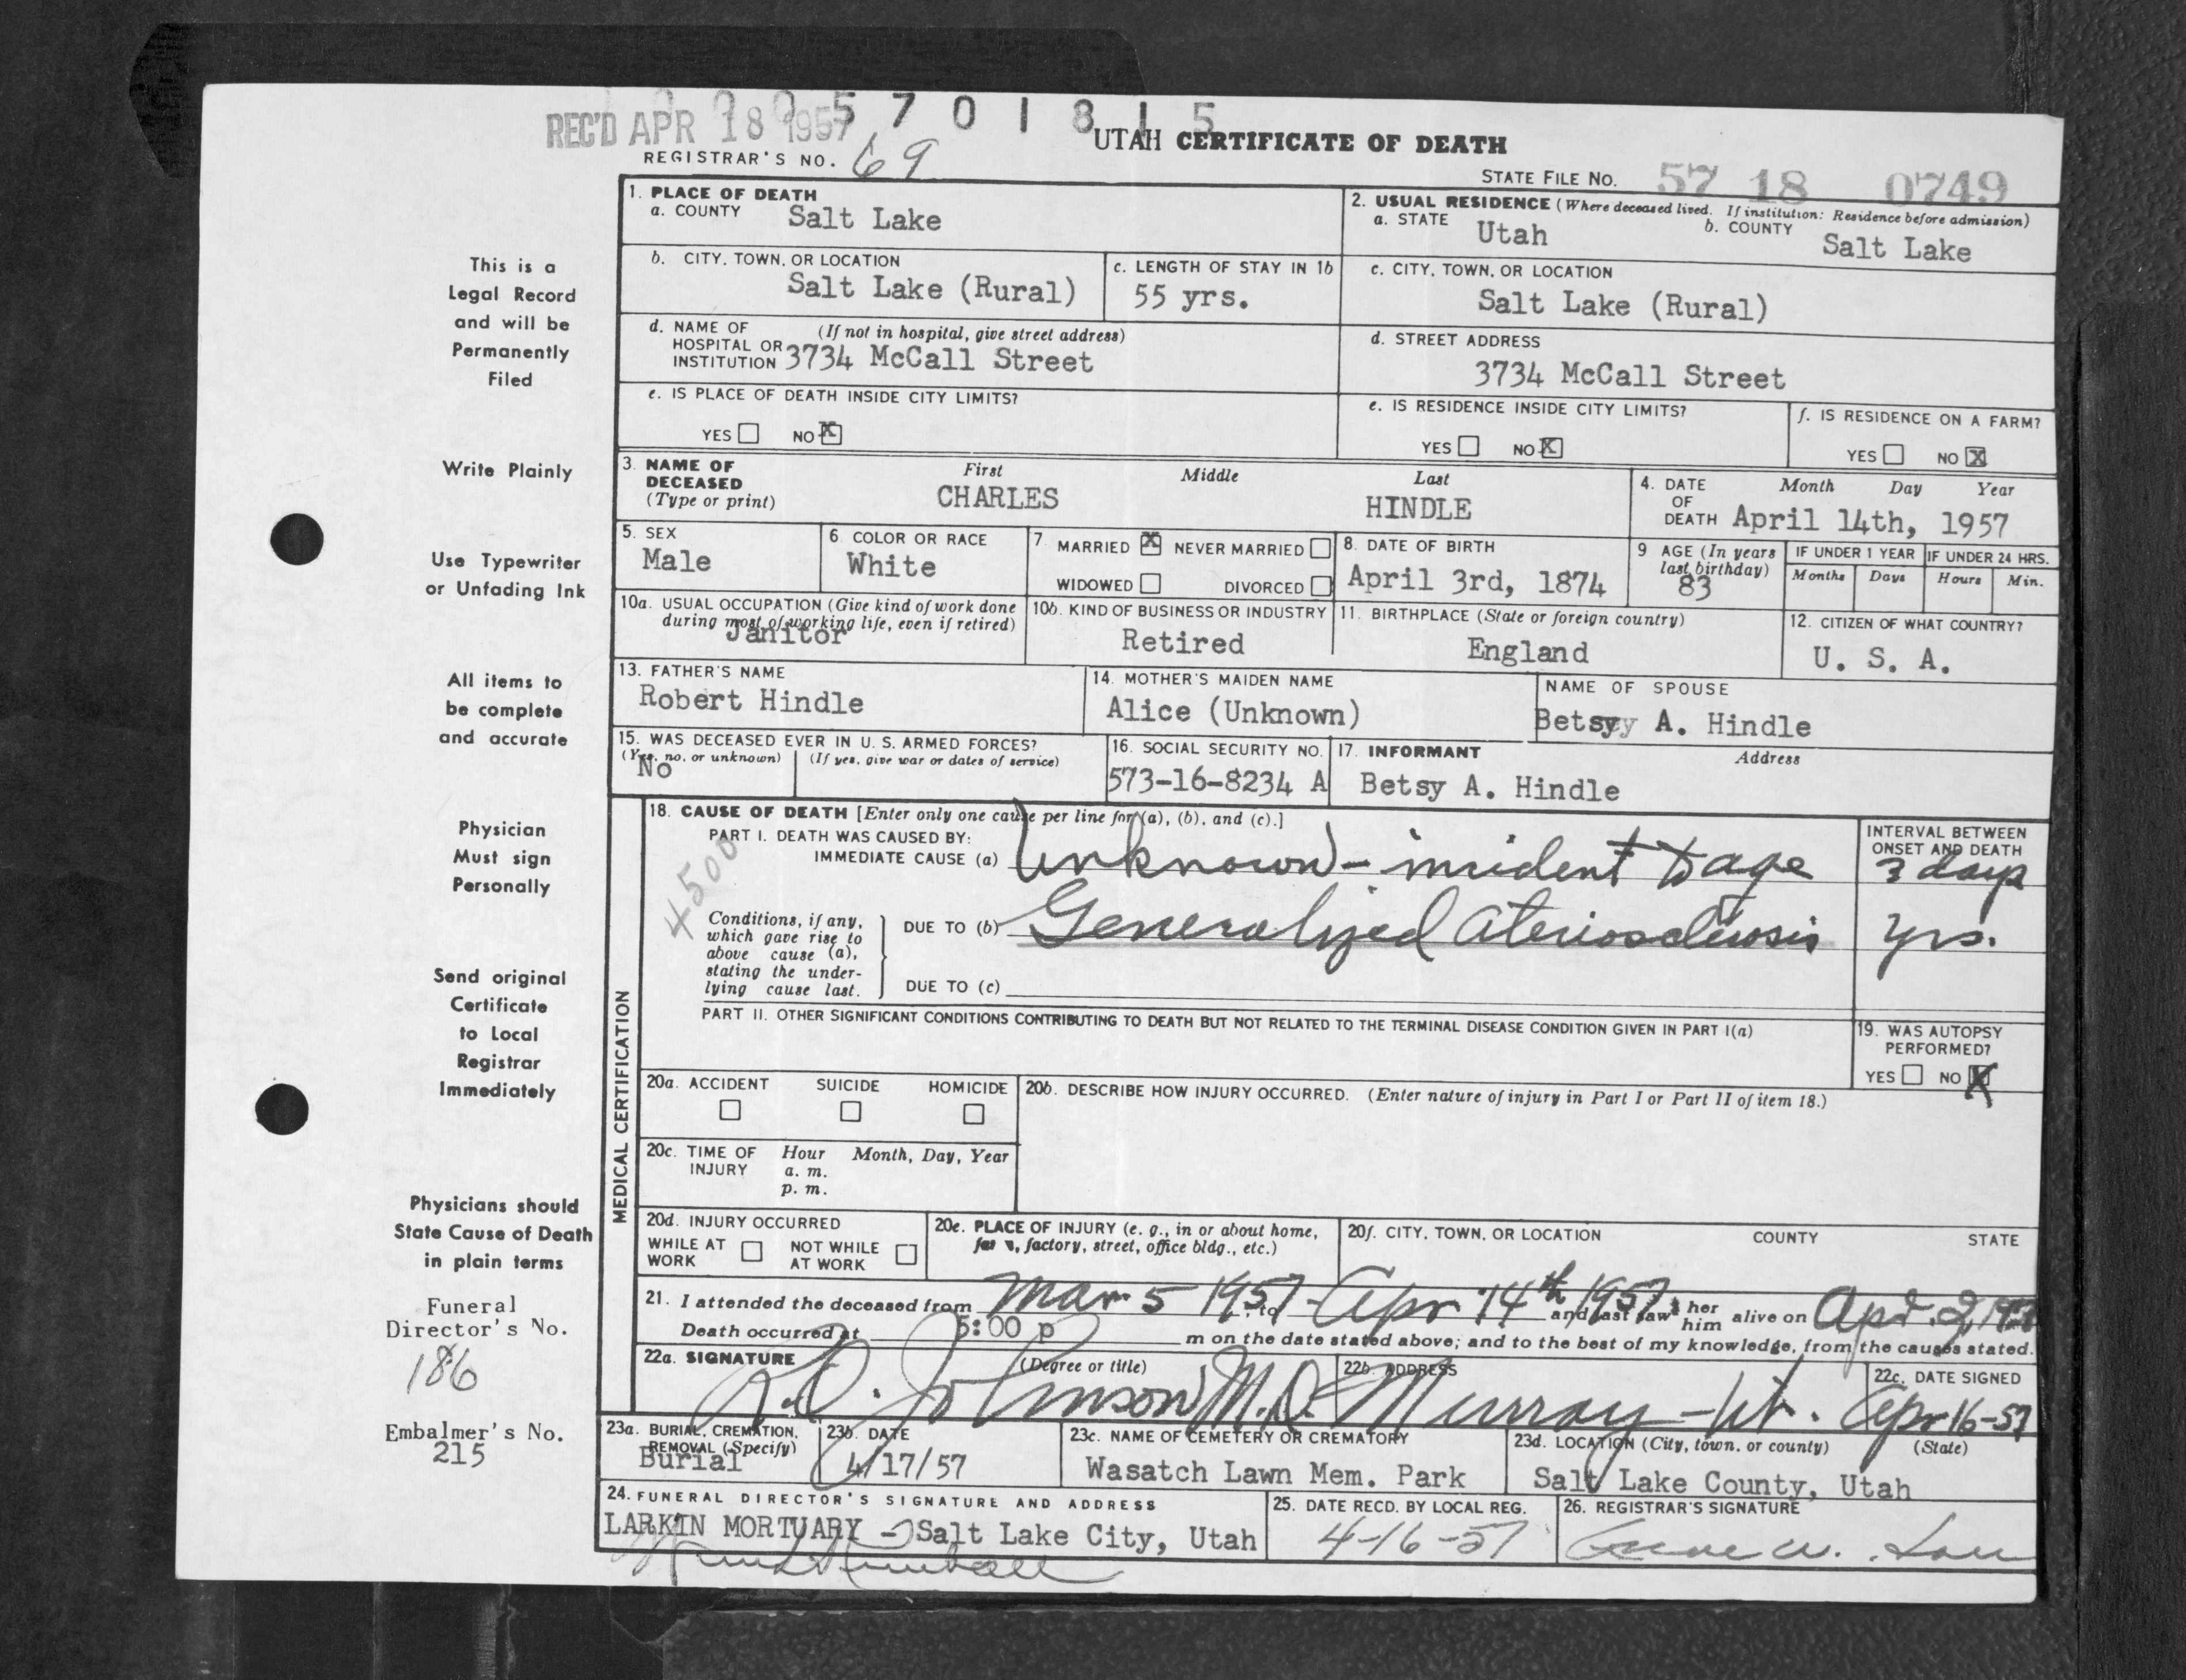 0 0 0 5 7 0 1 8 1 5
REC'D APR 18 1957
UTAH CERTIFICATE OF DEATH
REGISTRAR'S NO. 69
STATE FILE NO. 57 18 0749
This is a
Legal Record
and will be
Permanently
Filed
Write Plainly
Use Typewriter
or Unfading Ink
All items to
be complete
and accurate
Physician
Must sign
Personally
Send original
Certificate
to Local
Registrar
Immediately
Physicians should
State Cause of Death
in plain terms
Funeral
Director's No.
186
Embalmer's No.
215
1. PLACE OF DEATH
a. COUNTY Salt Lake
2. USUAL RESIDENCE (Where deceased lived. If institution: Residence before admission)
a. STATE Utah b. COUNTY Salt Lake
b. CITY, TOWN, OR LOCATION
Salt Lake (Rural)
c. LENGTH OF STAY IN 1b
55 yrs.
c. CITY, TOWN, OR LOCATION
Salt Lake (Rural)
d. NAME OF (If not in hospital, give street address)
HOSPITAL OR
INSTITUTION 3734 McCall Street
d. STREET ADDRESS
3734 McCall Street
e. IS PLACE OF DEATH INSIDE CITY LIMITS?
YES NO X
e. IS RESIDENCE INSIDE CITY LIMITS?
YES NO X
f. IS RESIDENCE ON A FARM?
YES NO X
3. NAME OF DECEASED (Type or print)
First Middle Last
CHARLES HINDLE
4. DATE OF DEATH Month Day Year
April 14th, 1957
5. SEX
Male
6. COLOR OR RACE
White
7. MARRIED X NEVER MARRIED
WIDOWED DIVORCED
8. DATE OF BIRTH
April 3rd, 1874
9 AGE (In years last birthday)
83
IF UNDER 1 YEAR IF UNDER 24 HRS.
Months Days Hours Min.
10a. USUAL OCCUPATION (Give kind of work done
during most of working life, even if retired)
Janitor
10b. KIND OF BUSINESS OR INDUSTRY
Retired
11. BIRTHPLACE (State or foreign country)
England
12. CITIZEN OF WHAT COUNTRY?
U. S. A.
13. FATHER'S NAME
Robert Hindle
14. MOTHER'S MAIDEN NAME
Alice (Unknown)
NAME OF SPOUSE
Betsy A. Hindle
15. WAS DECEASED EVER IN U. S. ARMED FORCES?
(Yes, no, or unknown) (If yes, give war or dates of service)
No
16. SOCIAL SECURITY NO.
573-16-8234 A
17. INFORMANT Address
Betsy A. Hindle
MEDICAL CERTIFICATION
18. CAUSE OF DEATH [Enter only one cause per line for (a), (b), and (c).]
4500
PART I. DEATH WAS CAUSED BY:
IMMEDIATE CAUSE (a) Unknown - incident to age
INTERVAL BETWEEN
ONSET AND DEATH
3 days
Conditions, if any,
which gave rise to
above cause (a),
stating the under-
lying cause last.
DUE TO (b) Generalized Ateriosclerosis yrs.
DUE TO (c)
PART II. OTHER SIGNIFICANT CONDITIONS CONTRIBUTING TO DEATH BUT NOT RELATED TO THE TERMINAL DISEASE CONDITION GIVEN IN PART I(a)
19. WAS AUTOPSY
PERFORMED?
YES NO X
20a. ACCIDENT SUICIDE HOMICIDE
20b. DESCRIBE HOW INJURY OCCURRED. (Enter nature of injury in Part I or Part II of item 18.)
20c. TIME OF INJURY Hour Month, Day, Year
a. m.
p. m.
20d. INJURY OCCURRED
WHILE AT WORK NOT WHILE AT WORK
20e. PLACE OF INJURY (e. g., in or about home,
farm, factory, street, office bldg., etc.)
20f. CITY, TOWN, OR LOCATION COUNTY STATE
21. I attended the deceased from Mar 5 1957 to Apr 14th 1957 and last saw her him alive on Apr. 2, 1957
Death occurred at 5:00 p m on the date stated above; and to the best of my knowledge, from the causes stated.
22a. SIGNATURE (Degree or title)
Johnson M.D.
22b. ADDRESS
Murray - Ut.
22c. DATE SIGNED
Apr 16-57
23a. BURIAL, CREMATION,
REMOVAL (Specify)
Burial
23b. DATE
4/17/57
23c. NAME OF CEMETERY OR CREMATORY
Wasatch Lawn Mem. Park
23d. LOCATION (City, town, or county) (State)
Salt Lake County, Utah
24. FUNERAL DIRECTOR'S SIGNATURE AND ADDRESS
LARKIN MORTUARY - Salt Lake City, Utah
25. DATE RECD. BY LOCAL REG.
4-16-57
26. REGISTRAR'S SIGNATURE